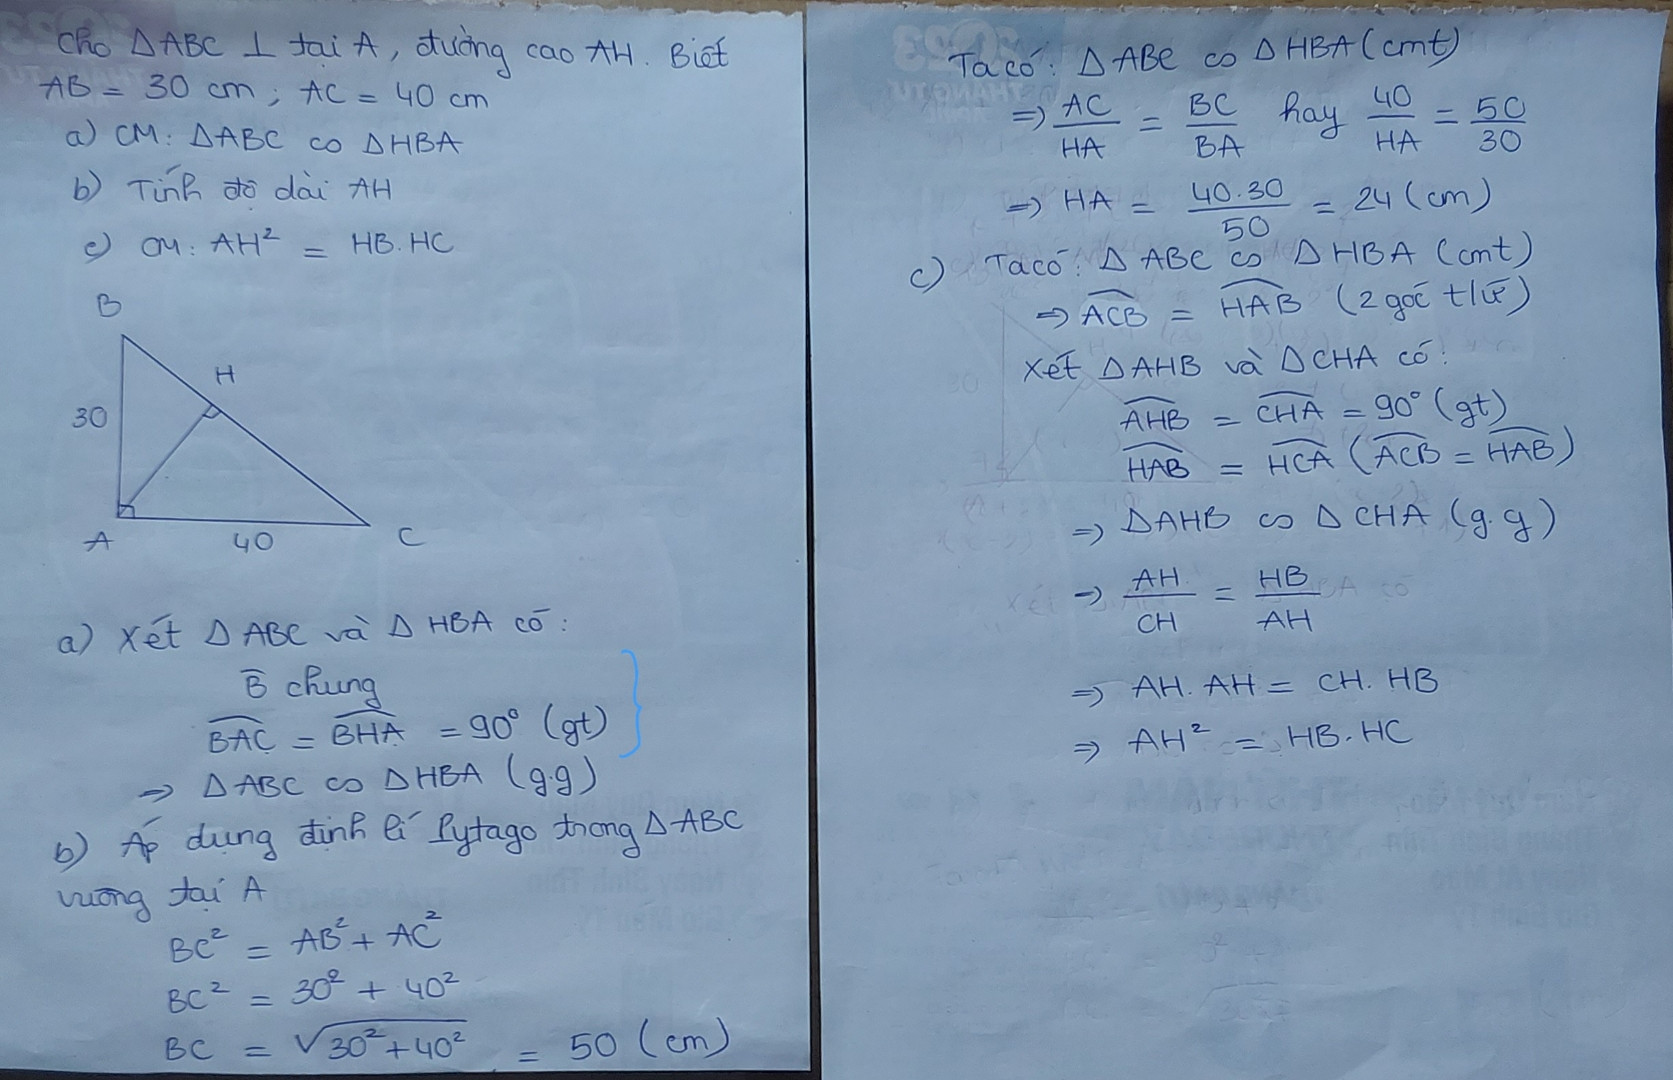 Cho Δ ABC ⊥ tại A, đường cao AH. Biết
AB = 30 cm; AC = 40 cm
a) CM: Δ ABC ∽ Δ HBA
b) Tính độ dài AH
c) CM: AH² = HB.HC
B
H
30
A
40
C
a) Xét Δ ABC và Δ HBA có:
B̂ chung
BAC = BHA = 90° (gt)
=> Δ ABC ∽ Δ HBA (g.g)
b) Áp dụng định lí Pytago trong Δ ABC
vuông tại A
BC² = AB² + AC²
BC² = 30² + 40²
BC = √30²+40² = 50 (cm)
Ta có: Δ ABC ∽ Δ HBA (cmt)
=> AC/HA = BC/BA hay 40/HA = 50/30
=> HA = 40.30/50 = 24 (cm)
c) Ta có: Δ ABC ∽ Δ HBA (cmt)
=> ACB = HAB (2 góc t/ư)
Xét Δ AHB và Δ CHA có:
AHB = CHA = 90° (gt)
HAB = HCA (ACB = HAB)
=> Δ AHB ∽ Δ CHA (g.g)
=> AH/CH = HB/AH
=> AH. AH = CH. HB
=> AH² = HB.HC